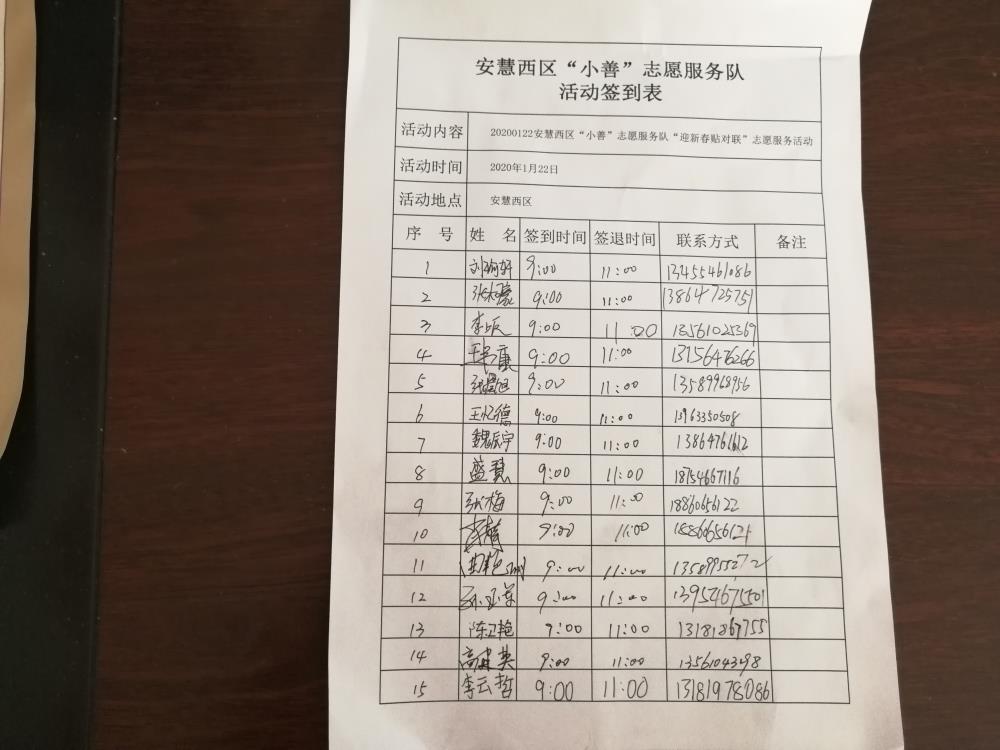 安慧西区“小善”志愿服务队
活动签到表
活动内容 20200122安慧西区“小善”志愿服务队“迎新春贴对联”志愿服务活动
活动时间 2020年1月22日
活动地点 安慧西区
序 号 姓 名 签到时间 签退时间 联系方式 备注
1 9:00 11:00 13455461086
2 9:00 11:00 13864725751
3 9:00 11:00 13561025369
4 9:00 11:00 13756476266
5 9:00 11:00 13589968956
6 王怀德 9:00 11:00
7 魏振宇 9:00 11:00
8 盛慧 9:00 11:00 18754667116
9 张梅 9:00 11:00 18860656122
10 9:00 11:00
11 9:00 11:00
12 9:00 11:00 13954675501
13 陈卫艳 9:00 11:00 13181867755
14 高建英 9:00 11:00
15 李云哲 9:00 11:00 13181978086